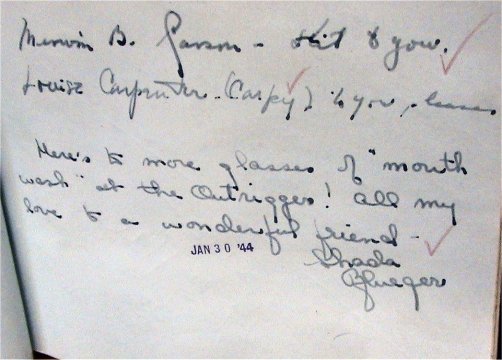 Merwin B. Garson - Hit & you.
Louise Carpenter - (Carpy) to you, please
Here's to more glasses of "mouth
wash" at the Outrigger! All my
love to a wonderful friend -
JAN 30 '44
Shada
Pflueger